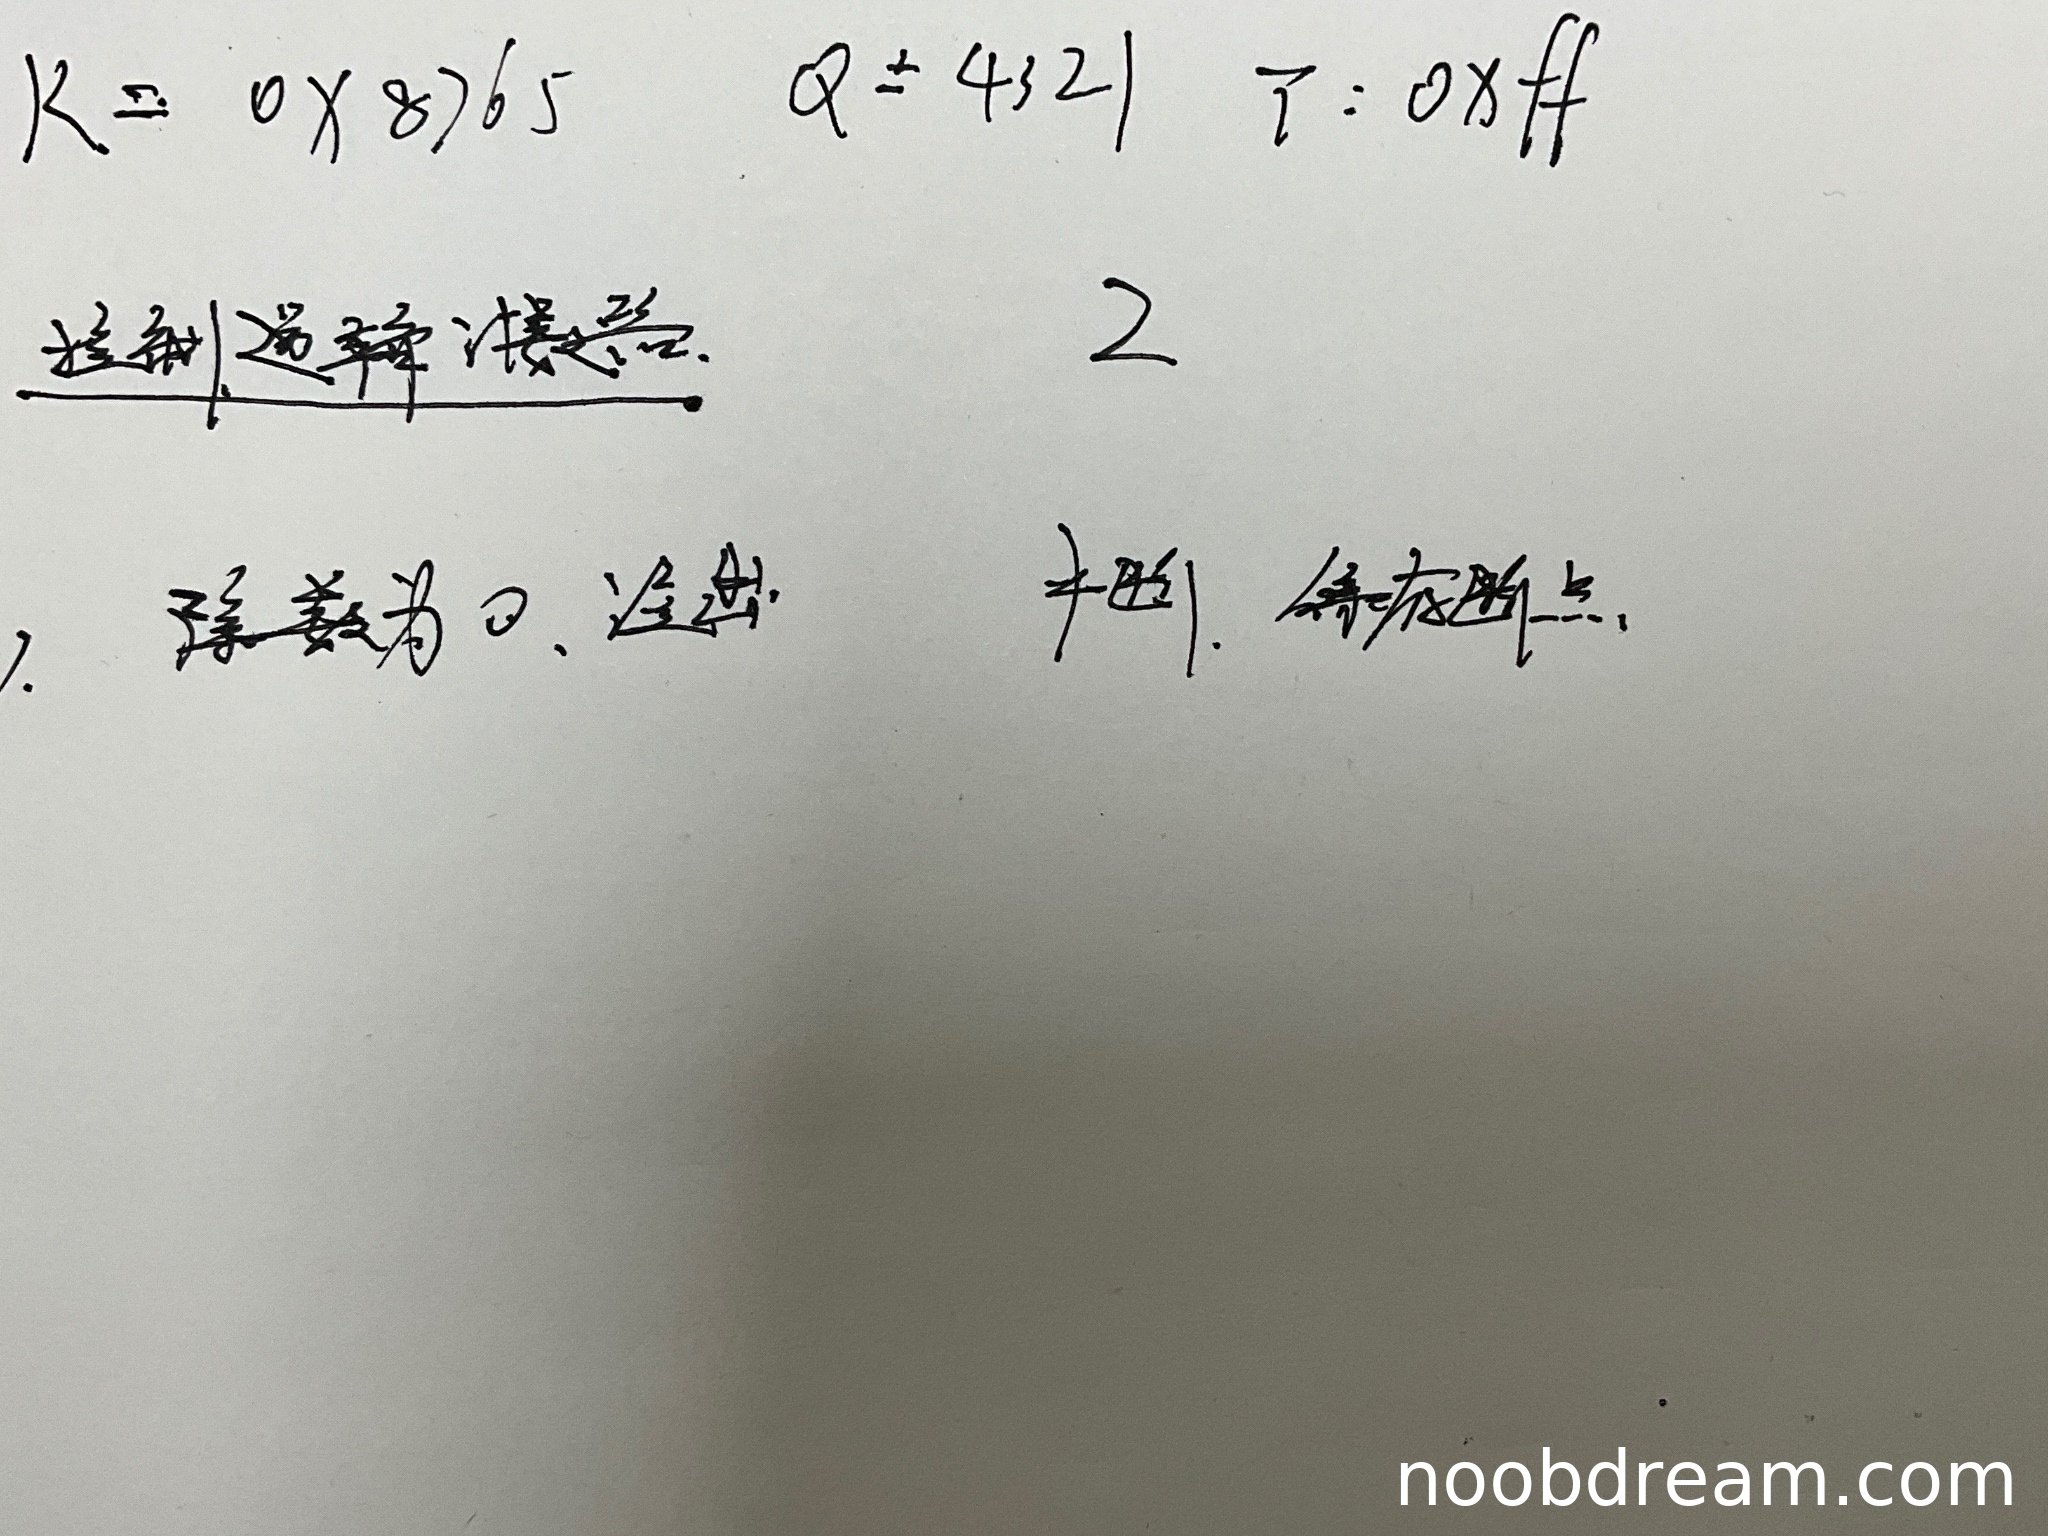 K= 0X8765 Q=4321 T: 0Xff
控制.选择 读总. 2
1. 除数为0、溢出. 中断. 保存断点.
noobdream.com